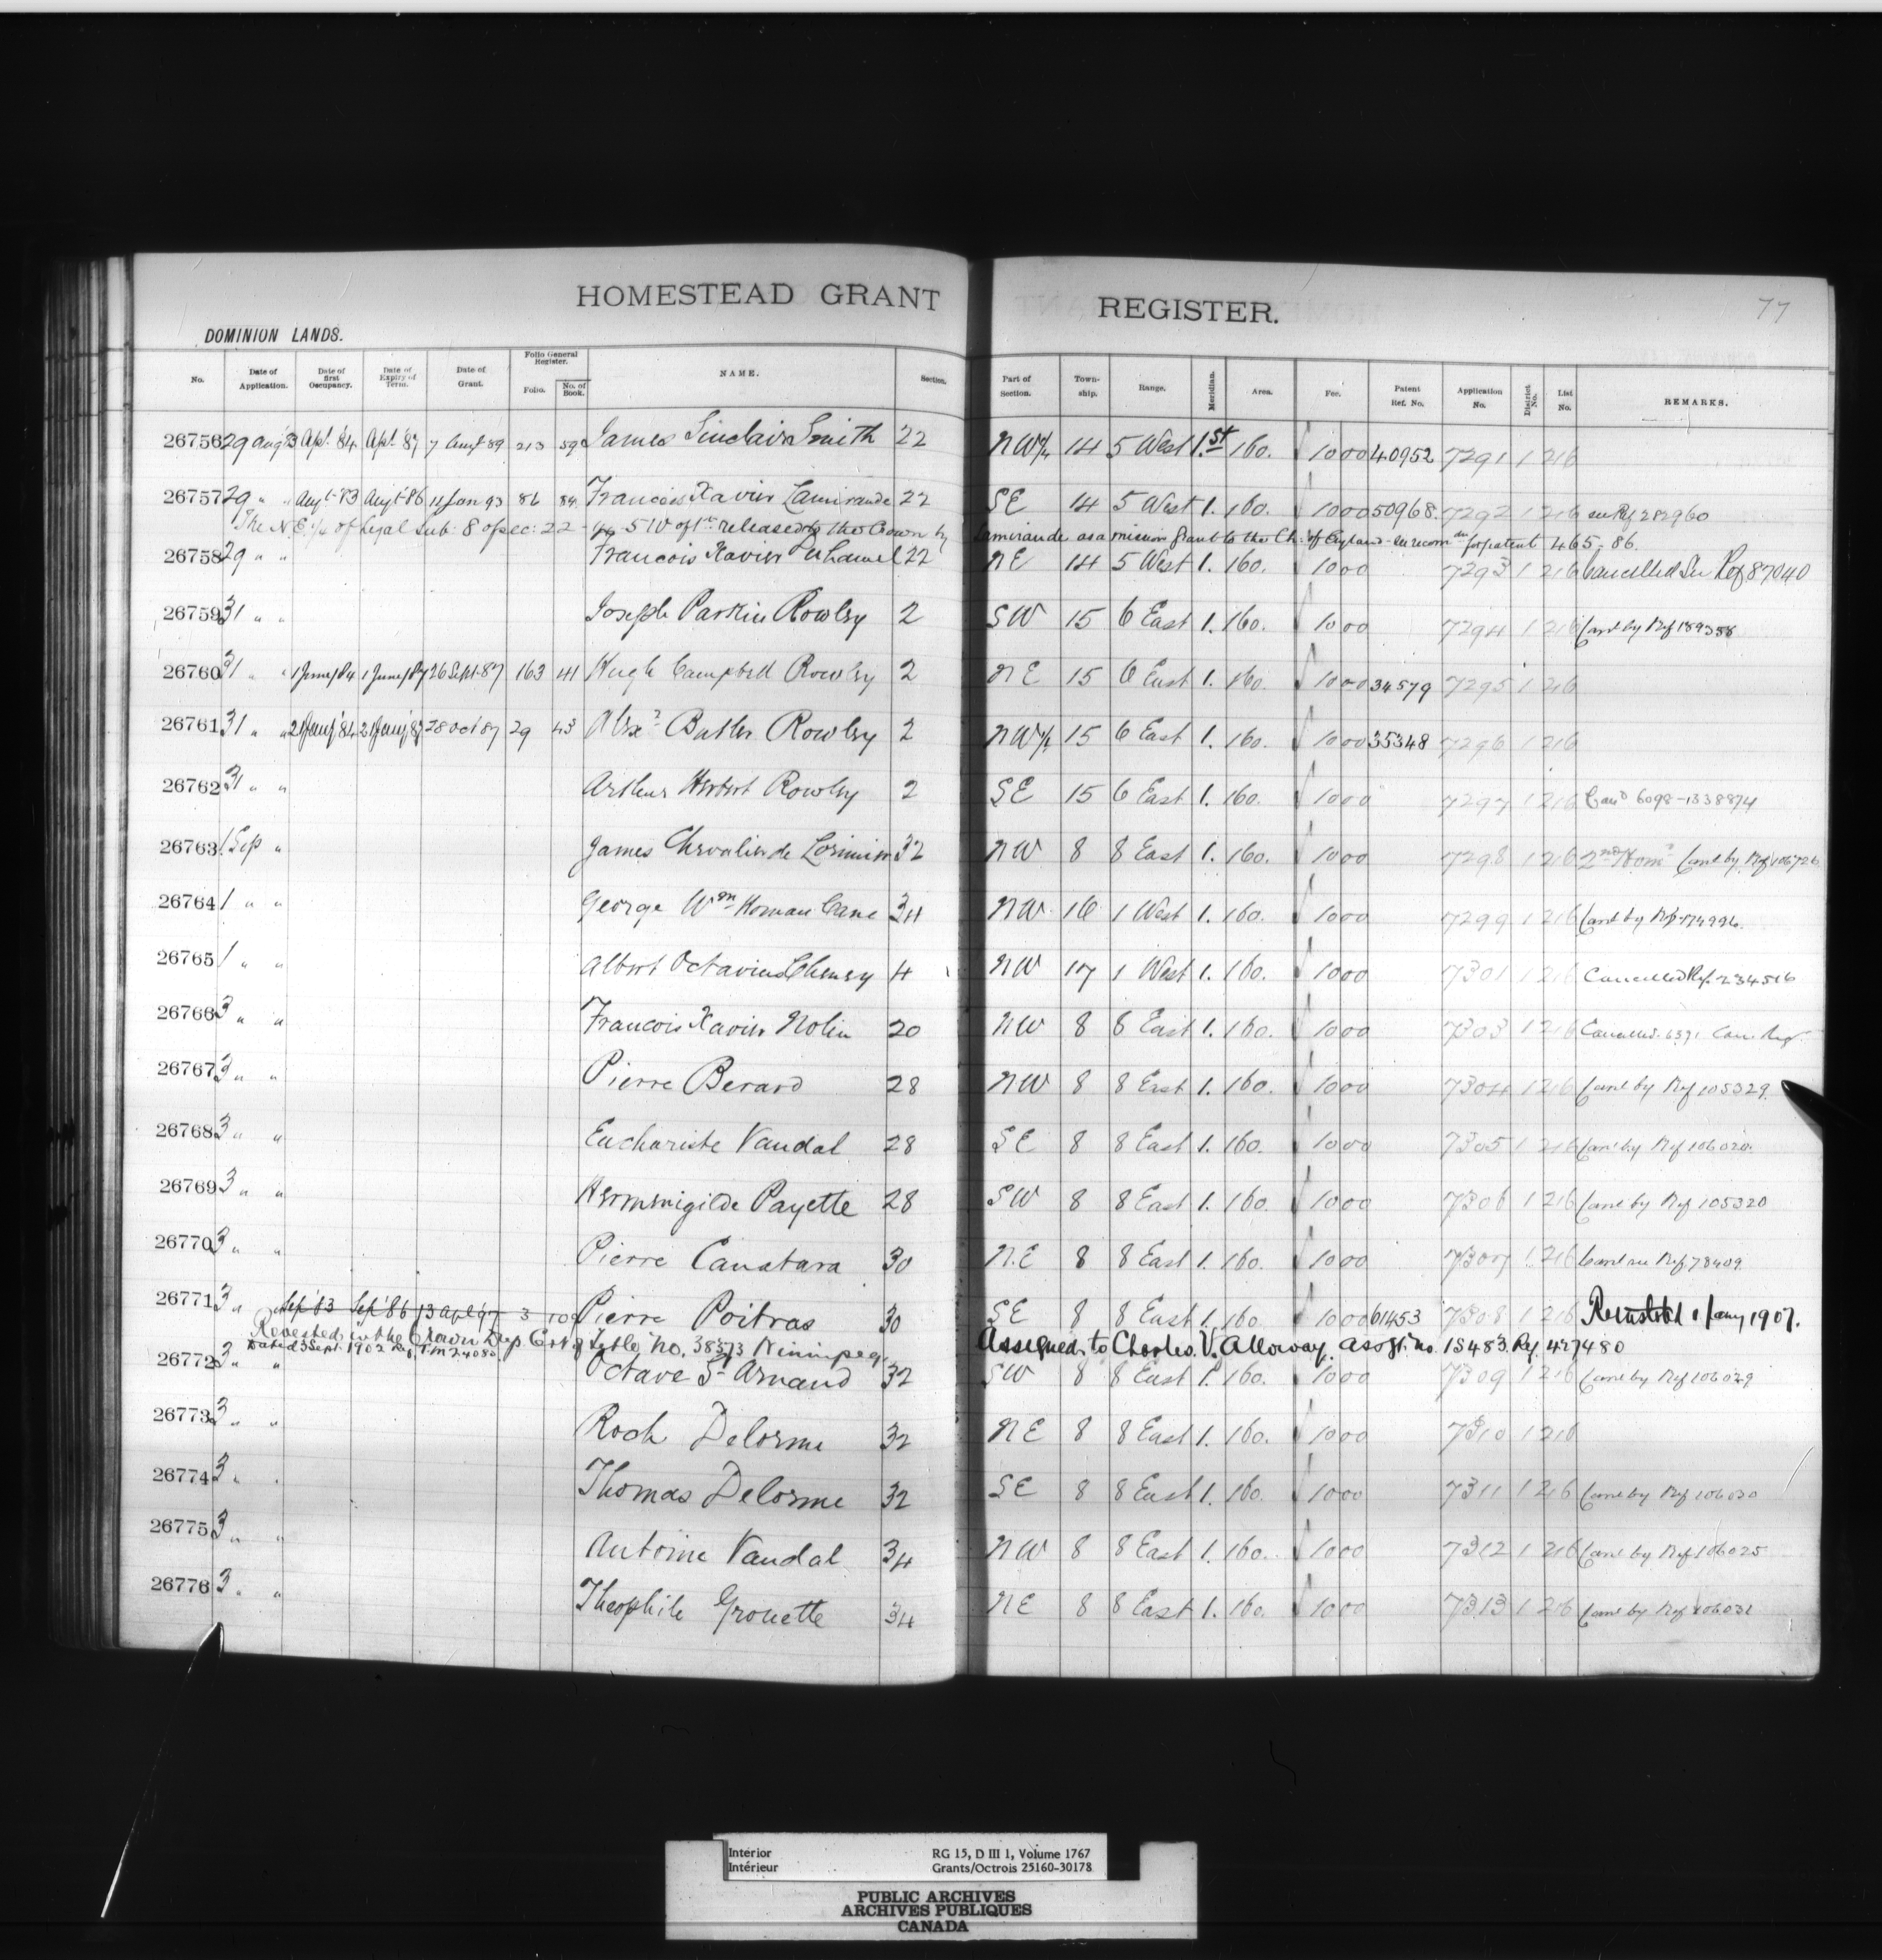 77
HOMESTEAD GRANT REGISTER.
DOMINION LANDS.
No. Date of Application. Date of first Occupancy. Date of Expiry of Term. Date of Grant. Folio General Register. Folio. No. of Book. NAME. Section. Part of Section. Township. Range. Meridian. Area. Fee. Patent Ref. No. Application No. District No. List No. REMARKS.
26756 29 Aug '83 Apl. '84 Apl. '87 7 Aug 89 213 59 James Sinclair Smith 22 NW¼ 14 5 West 1.st 160. 10 00 40952 7291 1 216
26757 29 " " Augt-83 Augt-86 11 Jan 93 86 84 Francois Xavier Lamirande 22 SE 14 5 West 1. 160. 10 00 50968. 7292 1 216 see Rf 282960
The N.E. ¼ of Legal Sub: 8 of sec: 22 - 5 W of 1st released to the Crown by Lamirande as a mission grant to the Ch. of England - for patent 465-86.
26758 29 " " Francois Xavier Duhamel 22 NE 14 5 West 1. 160. 10 00 7293 1 216 Cancelled See Ref 87040
26759 31 " " Joseph Parkin Rowley 2 SW 15 6 East 1. 160. 10 00 7294 1 216 Canl by Ref 189358
26760 31 " " 1 June/84 1 June/87 26 Sept-87 163 41 Hugh Campbell Rowley 2 NE 15 6 East 1. 160. 10 00 34579 7295 1 216
26761 31 " " 21 '84 21 '87 28 Oct 87 29 43 Alexr Butler Rowley 2 NW¼ 15 6 East 1. 160. 10 00 35348 7296 1 216
26762 31 " " Arthur Herbert Rowley 2 SE 15 6 East 1. 160. 10 00 7297 1 216 Cand 6098-1338874
26763 1 Sep " James Chevalier de Lorimier 32 NW 8 8 East 1. 160. 10 00 7298 1 216 2nd Homd Canl by Rf 106726
26764 1 " " George Wm Homan Cane 34 NW 16 1 West 1. 160. 10 00 7299 1 216 Canl by Rf 174996
26765 1 " " Albert Octavius Cheney 4 NW 17 1 West 1. 160. 10 00 7301 1 216 Cancelled Rf. 234516
26766 3 " " Francois Xavier Nolin 20 NW 8 8 East 1. 160. 10 00 7303 1 216 Cancelled. 6371 Can. Reg.
26767 3 " " Pierre Berard 28 NW 8 8 East 1. 160. 10 00 7304 1 216 Canl by Ref 105329.
26768 3 " " Euchariste Vandal 28 SE 8 8 East 1. 160. 10 00 7305 1 216 Canl by Ref 106020.
26769 3 " " Hermenigilde Payette 28 SW 8 8 East 1. 160. 10 00 7306 1 216 Canl by Ref 105320
26770 3 " " Pierre Canatara 30 N.E 8 8 East 1. 160. 10 00 7307 1 216 Canl see Ref 78409
26771 3 " " Sep '83 Sep '86 13 Apl '97 3 109 Pierre Poitras 30 SE 8 8 East 1. 160 10 00 61453 7308 1 216 Reinstated 1 Jany 1907.
Revested in the Crown Dep. Cert of Title No. 38573 Winnipeg Assigned to Charles V. Alloway. assgt. no. 15483. Rf. 427480
Dated 3 Sept. 1902 Ref. T.M 24080.
26772 3 " " Octave St Arnaud 32 SW 8 8 East 1. 160. 10 00 7309 1 216 Canl by Ref 106029
26773 3 " " Roch Delorme 32 NE 8 8 East 1. 160. 10 00 7310 1 216
26774 3 " " Thomas Delorme 32 SE 8 8 East 1. 160. 10 00 7311 1 216 Canl by Ref 106030
26775 3 " " Antoine Vandal 34 NW 8 8 East 1. 160. 10 00 7312 1 216 Canl by Ref 106025
26776 3 " " Theophile Grouette 34 NE 8 8 East 1. 160. 10 00 7313 1 216 Canl by Ref 106031
Interior RG 15, D III 1, Volume 1767
Intérieur Grants/Octrois 25160-30178
PUBLIC ARCHIVES
ARCHIVES PUBLIQUES
CANADA